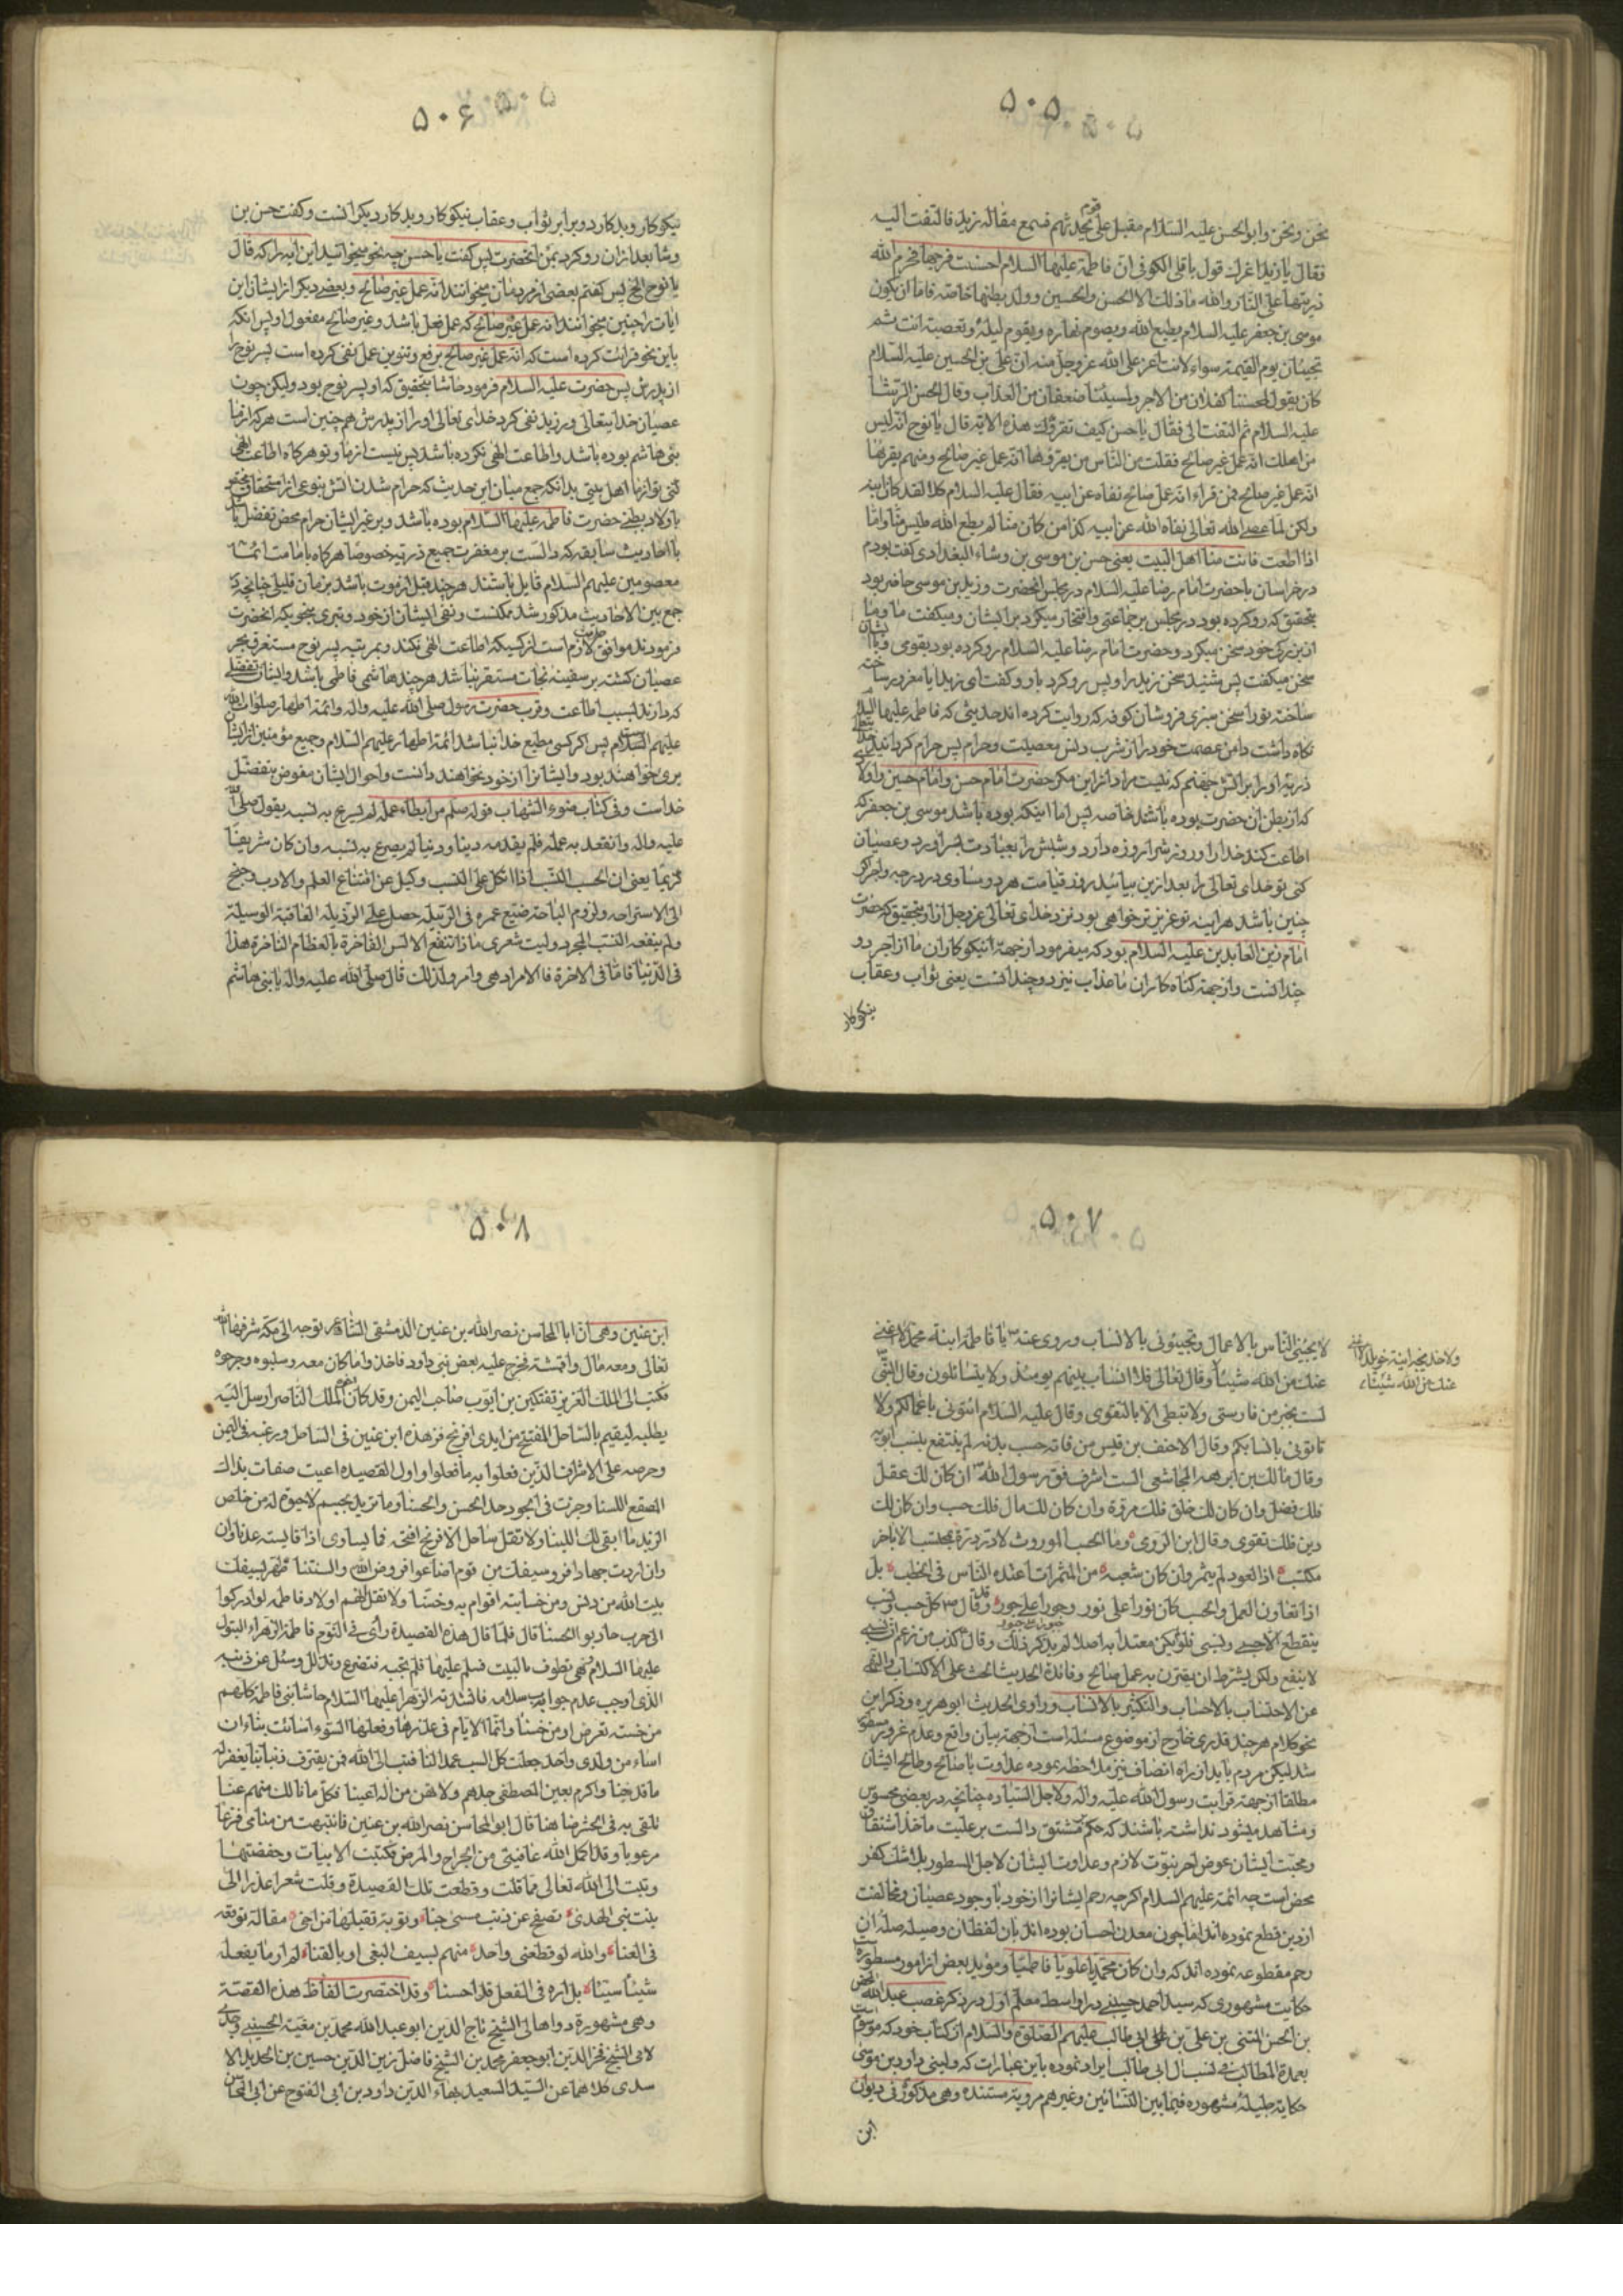 ۵۰۵
نحن ونحن وابوالحسن علیه السلام مقبل علی قوم یحدثهم فسمع مقالة زید فالتفت الیه
فقال یا زید اغرک قول باقلی الکوفی ان فاطمة علیها السلام احسنت فرجها فحرم الله
ذریتها علی النار والله ما ذلک الا الحسن والحسین وولد بطنها خاصة فاما ان یکون
موسی بن جعفر علیه السلام یطیع الله ویصوم نهاره ویقوم لیله وتعصیه انت ثم
تجیئان یوم القیمة سواء لانت اعز علی الله عز وجل منه ان علی بن الحسین علیه السلام
کان یقول لمحسننا کفلان من الاجر ولمسیئنا ضعفان من العذاب وقال الحسن الوشا
علیه السلام ثم التفت الی فقال یا حسن کیف تقرؤن هذه الآیة قال یا نوح انه لیس
من اهلک انه عمل غیر صالح فقلت من الناس من یقرؤها انه عمل غیر صالح ومنهم یقرئها
انه عمل غیر صالح فمن قراء انه عمل صالح نفاه عن ابیه فقال علیه السلام کلا لقد کان ابنه
ولکن لما عصی الله تعالی نفاه الله عن ابیه کذا من کان منا لم یطع الله فلیس منا واما
اذا اطعت فانت منا اهل البیت یعنی حسن بن موسی بن وشاء البغدادی کفت بودم
در خراسان با حضرت امام رضا علیه السلام در مجلس انحضرت وزید بن موسی حاضر بود
بتحقیق که رو کرده بود در مجلس بر جماعتی وافتخار میکرد بر ایشان ومیکفت ما وما
از بزرکی خود سخن میکرد وحضرت امام رضا علیه السلام رو کرده بود بقومی وبا ایشان
سخن میکفت پس شنید سخن زید را وپس رو کرد باو وکفت ای زید ایا مغرور ساخته
ساخته تو را سخن سبزی فروشان کوفه که روایت کرده اند حدیثی که فاطمه علیها السلام
نکاه داشت دامن عصمت خود را از شرب دنس معصیت وحرام پس حرام کردانید
ذریه او را بر اتش جهنم که نیست مراد از این مکر حضرت امام حسن وامام حسین واولاد
که از بطن ان حضرت بوده باشد خاصه پس اما اینکه بوده باشد موسی بن جعفر که
اطاعت کند خدا را وروزش را روزه دارد وشبش را بعبادت بسر اورد وعصیان
کنی تو خدای تعالی را بعد از این بیائید روز قیامت هر دو مساوی در درجه واجر اکر
چنین باشد هراینه تو عزیزتر خواهی بود نزد خدای تعالی عز وجل از او بتحقیق که حضرت
امام زین العابدین علیه السلام بود که میفرمود از جهة نیکوکاران ما از اجر دو
چندانست واز جهة کناه کاران ما عذاب نیز دو چندانست یعنی ثواب وعقاب
نیکوکار
۵۰۶
نیکوکار وبدکار دو برابر ثواب وعقاب نیکوکار وبدکار دیکرانست وکفت حسن بن
وشا بعد از ان رو کرد بمن انحضرت پس کفت یا حسن چه نحو میخوانید این ایه را که قال
یا نوح الخ پس کفتم بعضی از مردمان میخوانند انه عمل غیر صالح وبعضی دیکر از ایشان این
ایات را چنین میخوانند انه عمل غیر صالح که عمل فعل باشد وغیر صالح مفعول او پس انکه
باین نحو قرائت کرده است که انه عمل غیر صالح برفع وتنوین عمل نفی کرده است پسر نوح را
از پدرش پس حضرت علیه السلام فرمود حاشا بتحقیق که او پسر نوح بود ولیکن چون
عصیان خدایتعالی ورزید نفی کرد خدای تعالی او را از پدرش هم چنین است هرکه از ما
بنی هاشم بوده باشد واطاعت الهی نکرده باشد پس نیست از ما وتو هرکاه اطاعت الهی
کنی تو از ما اهل بیتی بدانکه جمع میان این حدیث که حرام شدن اتش بنوعی از استحقاق مختص
باولاد بطنی حضرت فاطمه علیها السلام بوده باشد وبر غیر ایشان حرام محض تفضل باشد
با احادیث سابقه که دالست بر مغفرت جمیع ذریه خصوصا هرکاه بامامت ائمه
معصومین علیهم السلام قایل باشند هرچند قبل از موت باشد بزمان قلیلی چنانچه در
جمع بین الاحادیث مذکور شد ممکنست ونفی ایشان از خود وتبری بنحویکه انحضرت
فرمودند موافق حدیث لازم است از کسیکه اطاعت الهی نکند وبمرتبه پسر نوح مستغرق بحر
عصیان کشته بر سفینه نجات مستقر نباشد هرچند هاشمی فاطمی باشد وایشان تفضلی
که دارند بسبب اطاعت وقرب حضرت رسول صلی الله علیه واله وائمه اطهار صلوات الله
علیهم السلام پس اکر کسی مطیع خدا نباشد ائمه اطهار علیهم السلام وجمیع مؤمنین از ایشان
بری خواهند بود وایشانرا از خود نخواهند دانست واحوال ایشان مفوض بتفضل
خداست وفی کتاب ضوء الشهاب قوله صلعم من ابطاء عمله لم یسرع به نسبه یقول صلی الله
علیه واله وانقعد به عمله فلم یقدمه دینا ودنیا لم یصرع به نسبه وان کان شریفا
کریما یعنی ان الحسب النسب اذا اتکل علی النسب وکیل عن اقتناع العلم والادب وجنح
الی الاستراحة ولزوم الباحة ضیع عمره فی الرتیلة حصل علی الرذیله العاقبة الوسیلة
ولم ینفعه النسب المجرد ولیت شعری ماذا تنتفع الانس الفاخرة بالعظام الناخرة هذا
فی الدنیا فاما فی الاخرة فالامر ادهی وامر ولذلک قال صلی الله علیه واله یا بنی هاشم
۵۰۷
لا یجیئنی الناس بالاعمال وتجیئونی بالانساب وروی عنه ص یا فاطمة ابنة محمد لا اغنی
عنک من الله شیئا وقال تعالی فلا انساب بینهم یومئذ ولا یتسائلون وقال النبی
لست بخیر من فارسی ولا نبطی الا بالتقوی وقال علیه السلام ائتونی باعمالکم ولا
تاتونی بانسابکم وقال الاحنف بن قیس من فاته حسب بدنه لم ینتفع بنسب ابویه
وقال مالک بن ابرهه المجاشعی الست اشرف فق رسول الله ص ان کان لک عقل
فلک فضل وان کان لک خلق فلک مروة وان کان لک مال فلک حسب وان کان لک
دین فلک تقوی وقال ابن الرومی وما الحسب الموروث لا در دره بمحتسب الا باخر
مکتسب اذا العود لم یثمر وان کان شعبه من المثمرات اعتده الناس فی الحطب بل
اذا تعاون العمل والحسب کان نورا علی نور وجورا علی جور وقد قال ص کل حسب ونسب
ینقطع الا حسبی ونسبی فلو لم یکن معتدا به اصلا لم یذکر ذلک وقال کذب من زعم ان نسبی
لا ینفع ولکن یشترط ان یقترن به عمل صالح وفائدة الحدیث الحث علی الاکتساب والنهی
عن الاحتساب بالاحساب والتکثیر بالانساب وراوی الحدیث ابو هریره وذکر این
نحو کلام هرچند قدری خارج از موضوع مسئله است از جهة بیان واقع وعدم غرور مسطور
شد لیکن مردم باید از راه انصاف نیز ملاحظه نموده عداوت با صالح وطالح ایشان
مطلقا از جهة قرابت رسول الله علیه واله ولاجل السیاده چنانچه در بعضی محسوس
ومشاهد میشود نداشته باشند که حکم مشتق دالست بر علیت ماخذ اشتقاق
ومحبت ایشان عوض اجر نبوت لازم وعداوت ایشان لاجل المسطور بلا شک کفر
محض است چه ائمه علیهم السلام اکرچه رحم ایشانرا از خود باوجود عصیان ومخالفت
از دین قطع نموده اند اما چون معدن احسان بوده اند بان لفظ ان وصیله صلة ان
رحم مقطوعه نموده اند که وان کان محمدیا علویا فاطمیا ومؤید بعض از امور مسطوره
حکایت مشهوری که سید احمد حسینی در اواسط معلم اول در ذکر غصب عبدالله المحض
بن الحسن المثنی بن علی بن علی ابی طالب علیهم الصلوة والسلام از کتاب خود که موسوم
بعمدة المطالب فی نسب ال ابی طالب ایراد نموده باین عبارات که ولبنی داود بن موسی
حکایة جلیلة مشهوره فیما بین النسابین وغیرهم مرویة مستنده وهی مذکورة فی دیوان
ابن
ولا خدیجه ابنة خویلد لا اغنی
عنک من الله شیئا
۵۰۸
ابن عنین وهی ان ابا المحاسن نصرالله بن عنین الدمشقی الشاعر توجه الی مکة شرفها الله
تعالی ومعه مال واقمشة فخرج علیه بعض بنی داود فاخذوا ما کان معه وسلبوه وجرحوه
فکتب الی الملک العزیز تفتکین بن ایوب صاحب الیمن وقد کان اخوه الملک الناصر ارسل الیه
یطلبه لیقیم بالساحل المفتتح من ایدی افرنج فزهده ابن عنین فی الساحل ورغبه فی الیمن
وحرصه علی الاشراف الذین فعلوا به ما فعلوا واول القصیده اعیت صفات بذاک
المصقع اللسنا وجزت فی الجود حد الحسن والحسنا وما ترید بجسم لا حیوة له من خلص
الزبد ما ابقی لک اللبنا ولا تقل ساحل الافرنج افتحه فما یساوی اذا قایسته عدنا وان
وان اردت جهادا فرو سیفک من قوم اضاعوا فروض الله والسننا طهر بسیفک
بیت الله من دنس ومن خساسة اقوام به وخنا ولا تقل انهم اولاد فاطمه لو ادرکوا
ال حرب حاربوا الحسنا قال فلما قال هذه القصیدة رأی فی النوم فاطمة الزهراء البتول
علیها السلام وهی تطوف بالبیت فسلم علیها فلم تجبه فتضرع وتذلل وسئل عن ذنبه
الذی اوجب عدم جواب سلامه فانشدته الزهرا علیها السلام حاشا بنی فاطمة کلهم
من خسته تعرض او من خنا وانما الایام فی غدرها وفعلها السوء اسائت بنا وان
اساء من ولدی واحد جعلت کل السب عمدا لنا فتب الی الله فمن یقترف ذنبا بنا یغفر له
ما قد جنا واکرم بعین المصطفی جدهم ولا تهن من اله اعینا فکل ما نالک منهم عنا
تلقی به فی الحشر منا هنا قال ابو المحاسن نصرالله بن عنین فانتبهت من منامی فزعا
مرعوبا وقد اکمل الله عافیتی من الجراح والمرض فکتبت الابیات وحفظتها
وتبت الی الله تعالی مما قلت وقطعت تلک القصیدة وقلت شعرا عذرا الی
بنت نبی الهدی تصفح عن ذنب مسیئ جنا وتوبة تقبلها من اخی مقالة توقعه
فی العنا والله لو قطعنی واحد منهم بسیف البغی او بالقنا لم ار ما یفعله
شیئا سیئا بل اره فی الفعل قد احسنا وقد اختصرت الفاظ هذه القصة
وهی مشهورة رواها لی الشیخ تاج الدین ابو عبدالله محمد بن مغیة الحسینی وجدی
لامی الشیخ فخر الدین ابو جعفر محمد بن الشیخ فاضل زین الدین حسین بن الحدید الا
سدی کلاهما عن السید السعید بهاء الدین داود بن ابی الفتوح عن ابی المحاسن